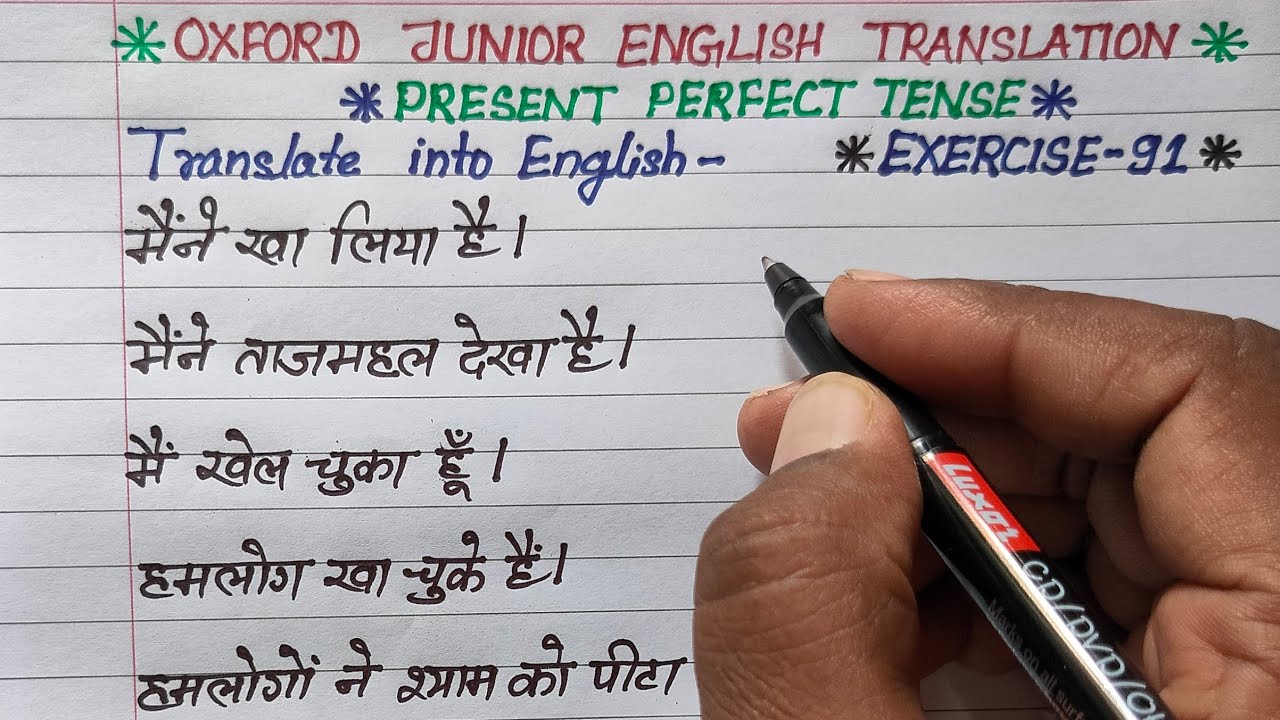 *OXFORD JUNIOR ENGLISH TRANSLATION*
*PRESENT PERFECT TENSE*
Translate into English- *EXERCISE-91*
मैंने खा लिया है।
मैंने ताजमहल देखा है।
मैं खेल चुका हूँ।
हमलोग खा चुके हैं।
हमलोगों ने श्याम को पीटा
Luxor
CD/DVD/O
Marks on all surf